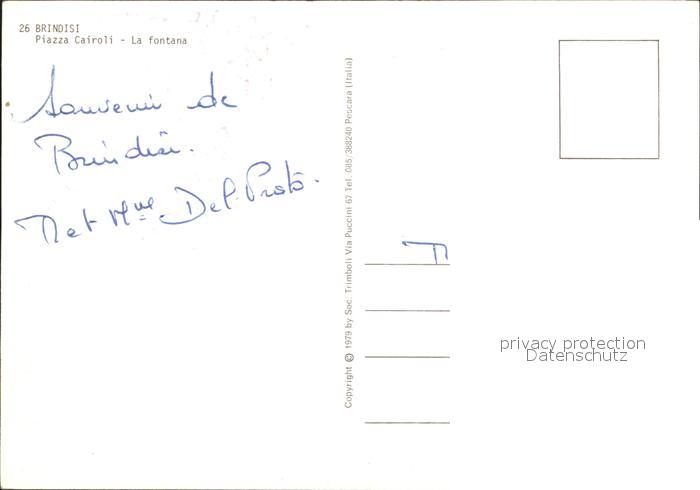 26 BRINDISI
Piazza Cairoli - La fontana
Souvenir de
Brindisi.
M et Mme Del Prato.
Copyright © 1979 by Soc. Trimboli Via Puccini 67 Tel. 085/388240 Pescara (Italia)
M
privacy protection
Datenschutz